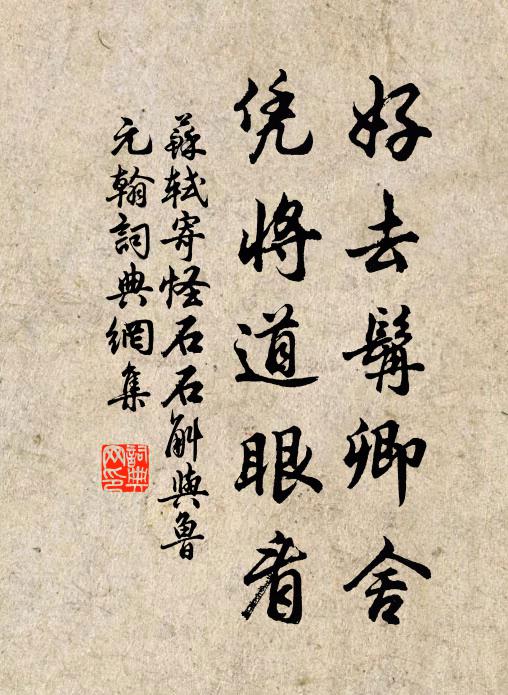 好去髯卿舍
凭將道眼看
蘇軾寄怪石石斛與魯
元翰詞典網集
詞典
网印